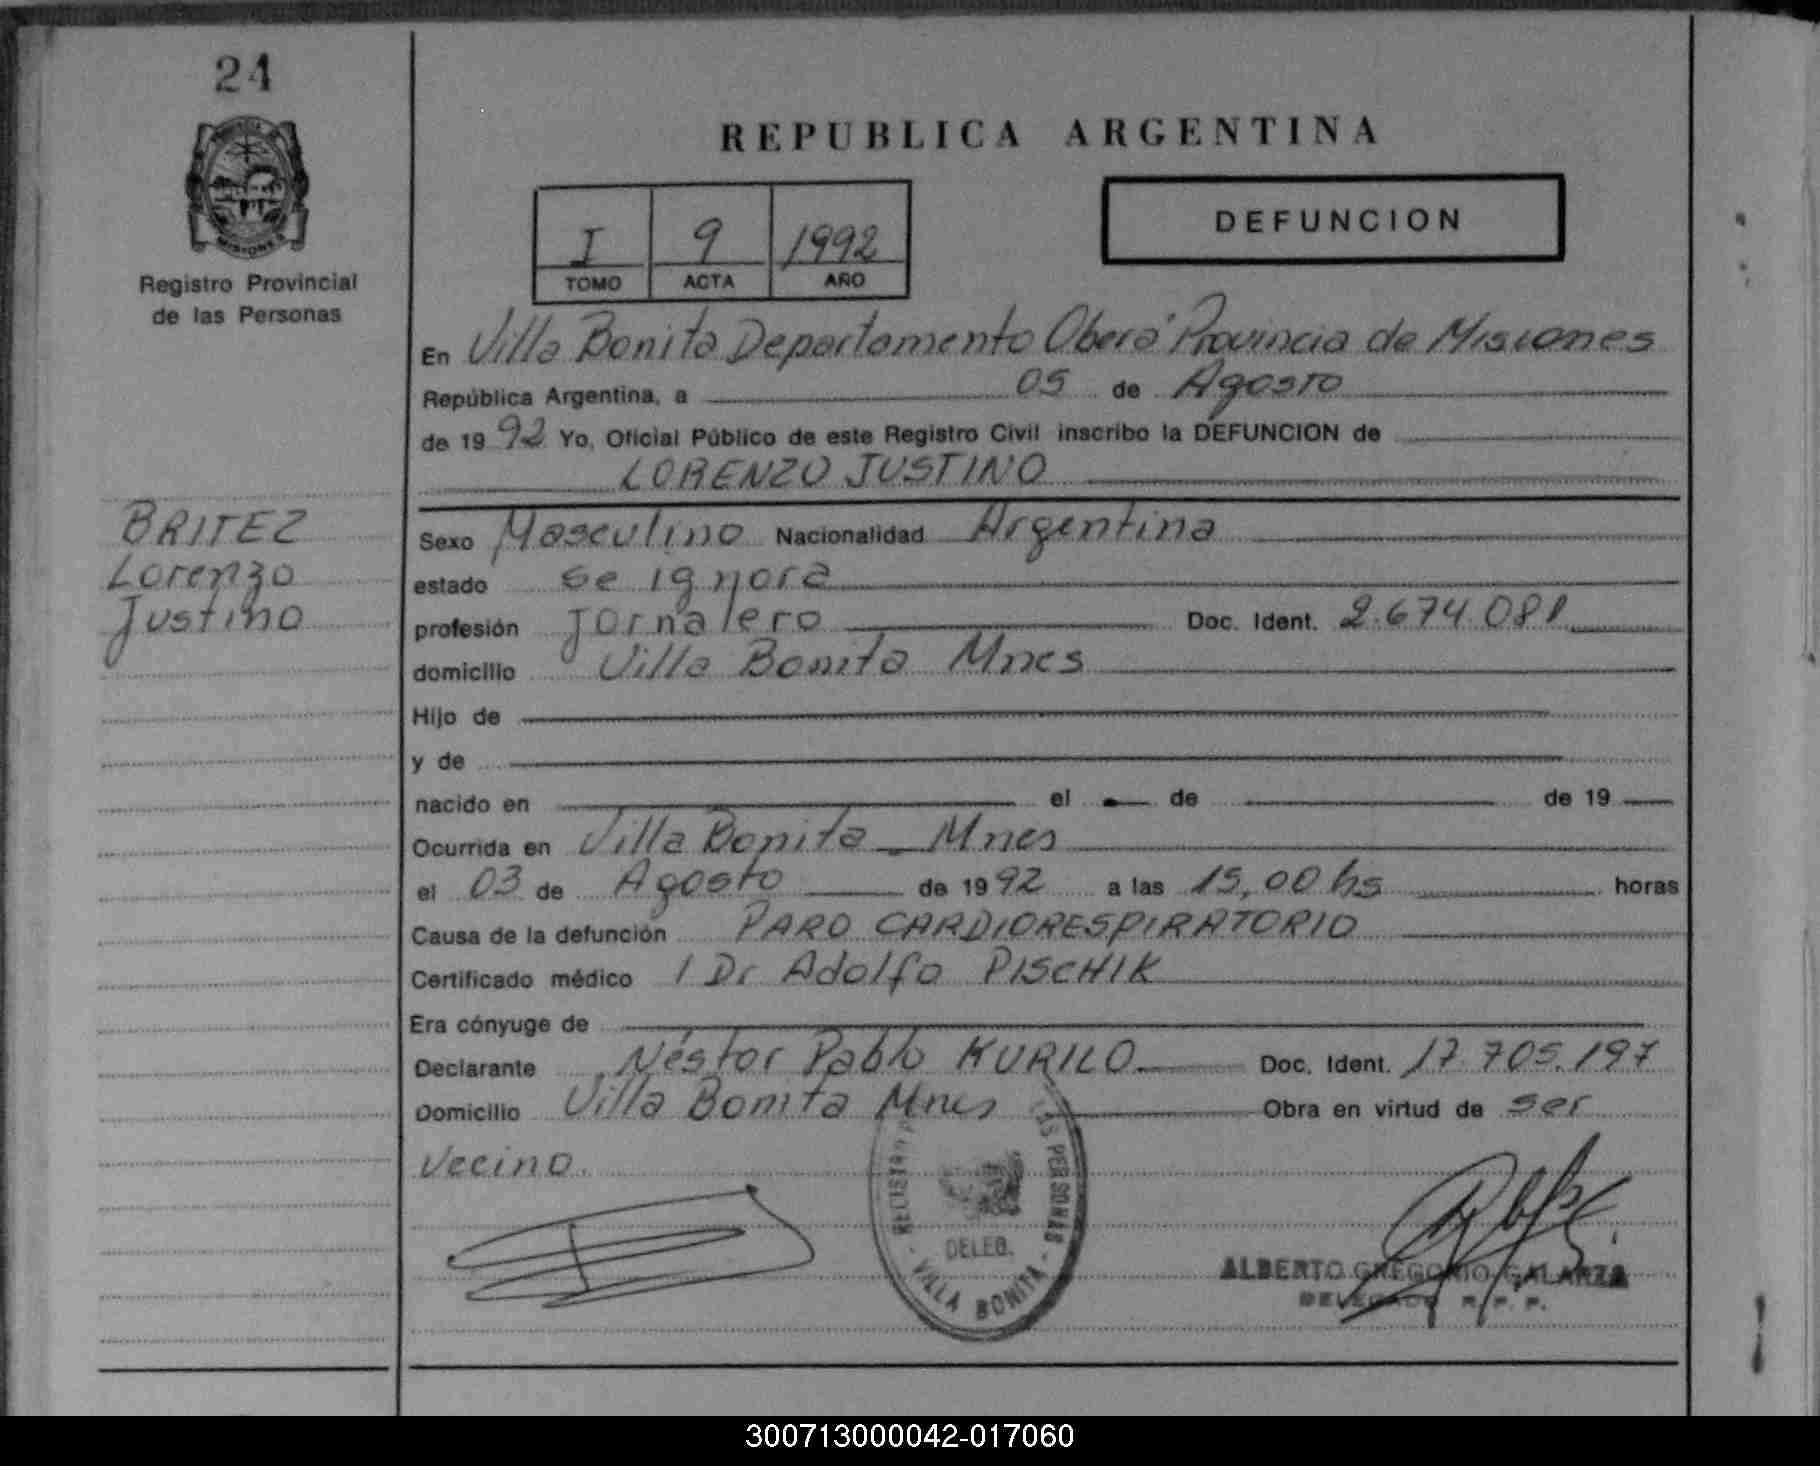 24
PROVINCIA DE
MISIONES
Registro Provincial
de las Personas
REPUBLICA ARGENTINA
I 9 1992
TOMO ACTA AÑO
DEFUNCION
En Villa Bonita Departamento Oberá Provincia de Misiones
República Argentina, a 05 de Agosto
de 1992 Yo, Oficial Público de este Registro Civil inscribo la DEFUNCION de
LORENZO JUSTINO
BRITEZ
Lorenzo
Justino
Sexo Masculino Nacionalidad Argentina
estado se ignora
profesión Jornalero Doc. Ident. 2.674.081
domicilio Villa Bonita Mnes
Hijo de
y de
nacido en el de de 19
Ocurrida en Villa Bonita - Mnes
el 03 de Agosto de 1992 a las 15,00 hs horas
Causa de la defunción PARO CARDIORESPIRATORIO
Certificado médico / Dr Adolfo PISCHIK
Era cónyuge de
Declarante Néstor Pablo KURILO Doc. Ident. 17.705.197
Domicilio Villa Bonita Mnes Obra en virtud de ser
Vecino.
REGISTRO P LAS PERSONAS
DELEG.
- VILLA BONITA -
ALBERTO GREGORIO GALARZA
DELEGADO R. P. P.
300713000042-017060